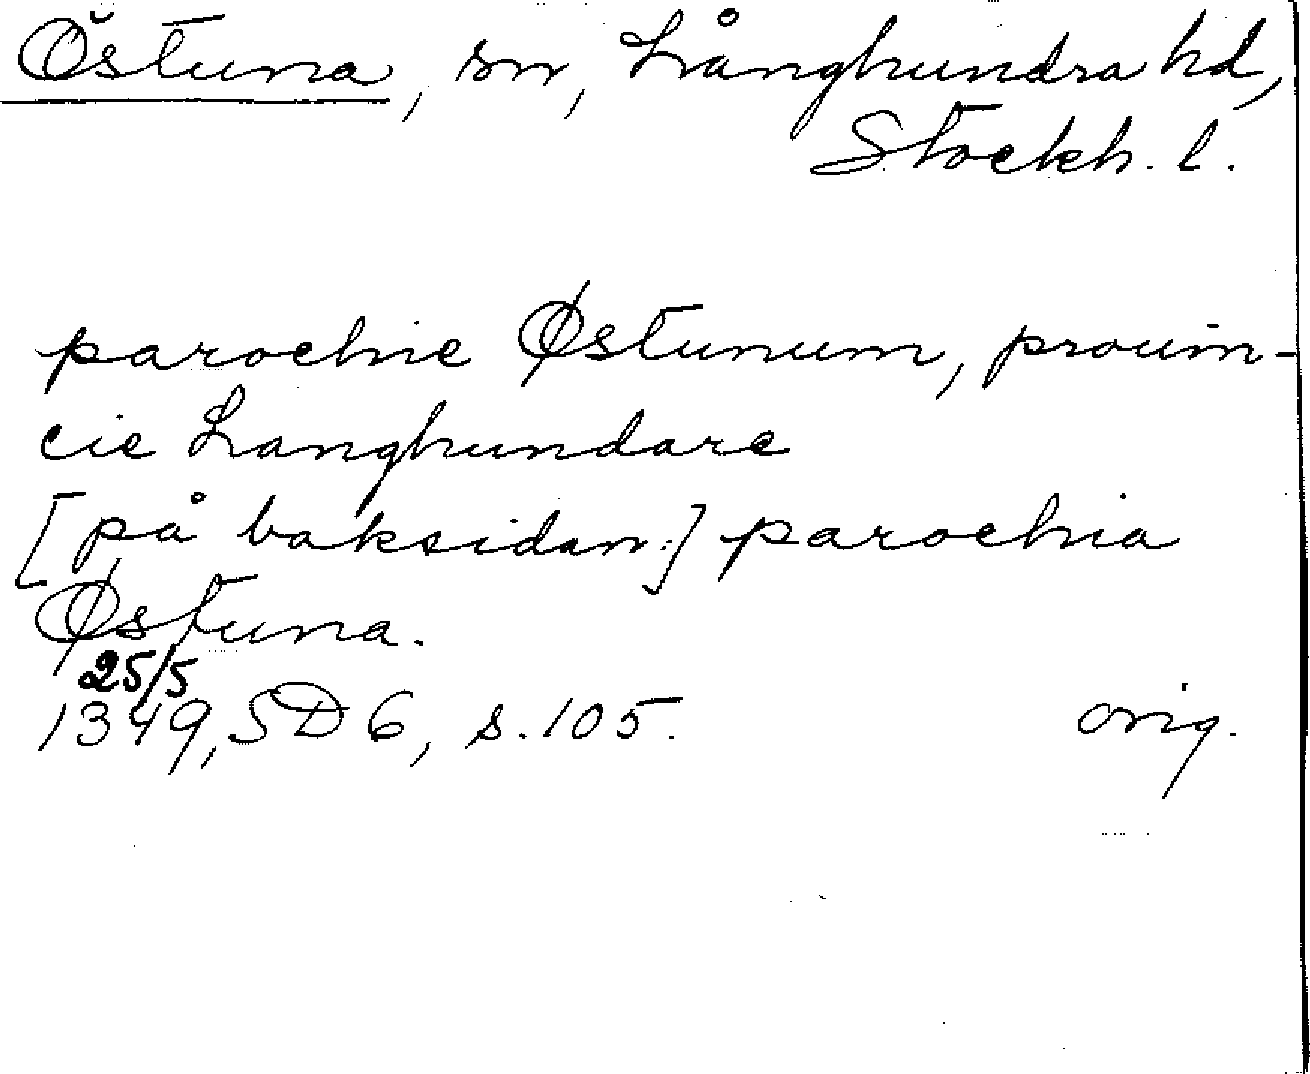 Östuna, sn, Långhundra hd,
Stockh. l.
parochie Østunum, prouin-
cie Langhundare
[på baksidan:] parochia
Østuna.
25/5
1349, SD 6, s. 105. orig.